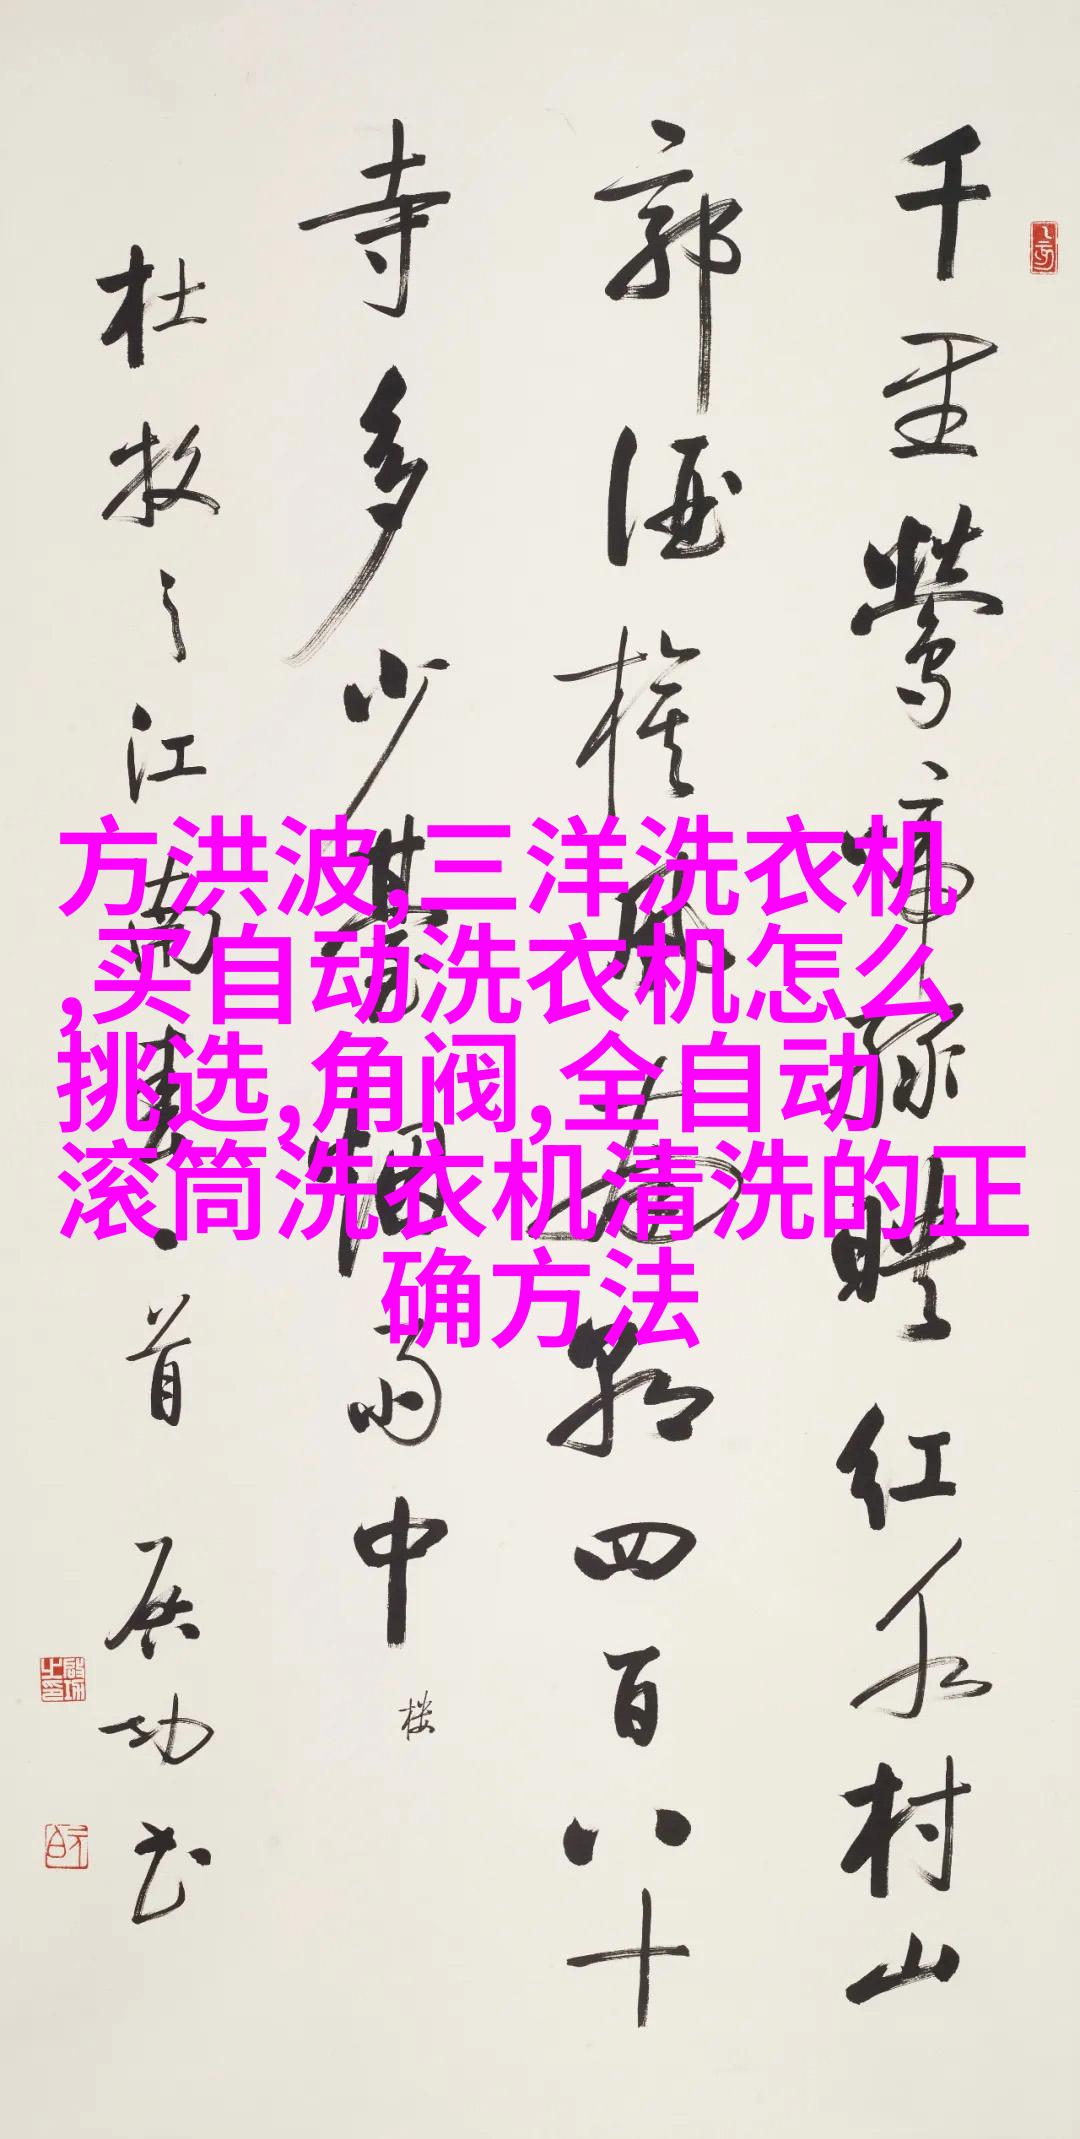 千里莺啼绿映红水村山
郭酒旗风南朝四百八十
寺多少楼台烟雨中
楼
杜牧之江南春一首 启功书
方洪波,三洋洗衣机
,买自动洗衣机怎么
挑选,角阀,全自动
滚筒洗衣机清洗的正
确方法